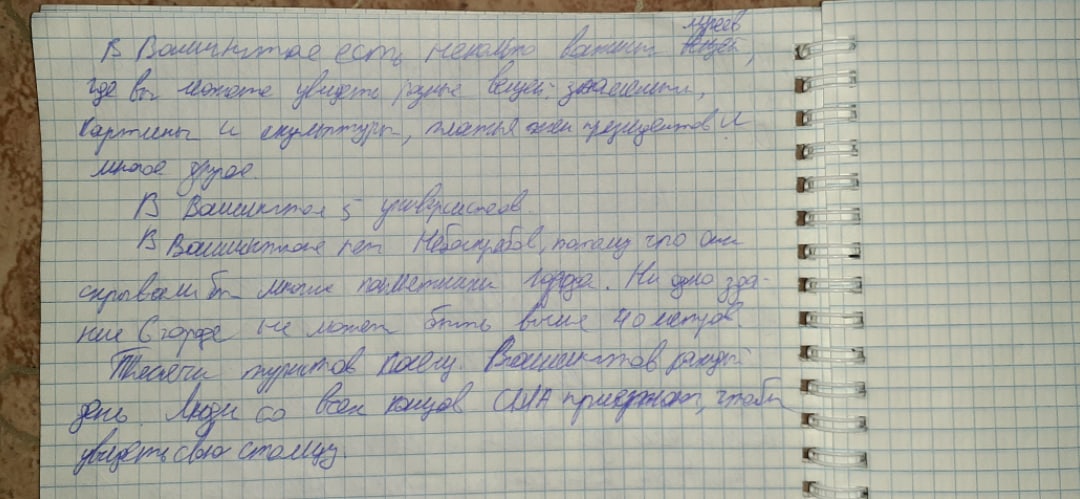 В Вашингтоне есть несколько важных музеев,
где вы можете увидеть разные вещей: знаменит,
картины и скульптуры, платья жен президентов и
многое другое.
В Вашингтоне 5 университетов.
В Вашингтоне нет небоскрёбов, потому что они
скрывали бы многие памятники города. Ни одно зда-
ние в городе не может быть выше 40 метров.
Тысячи туристов посещ. Вашингтов каждый
день. Люди со всех концов США приезжают, чтобы
увидеть свою столицу.